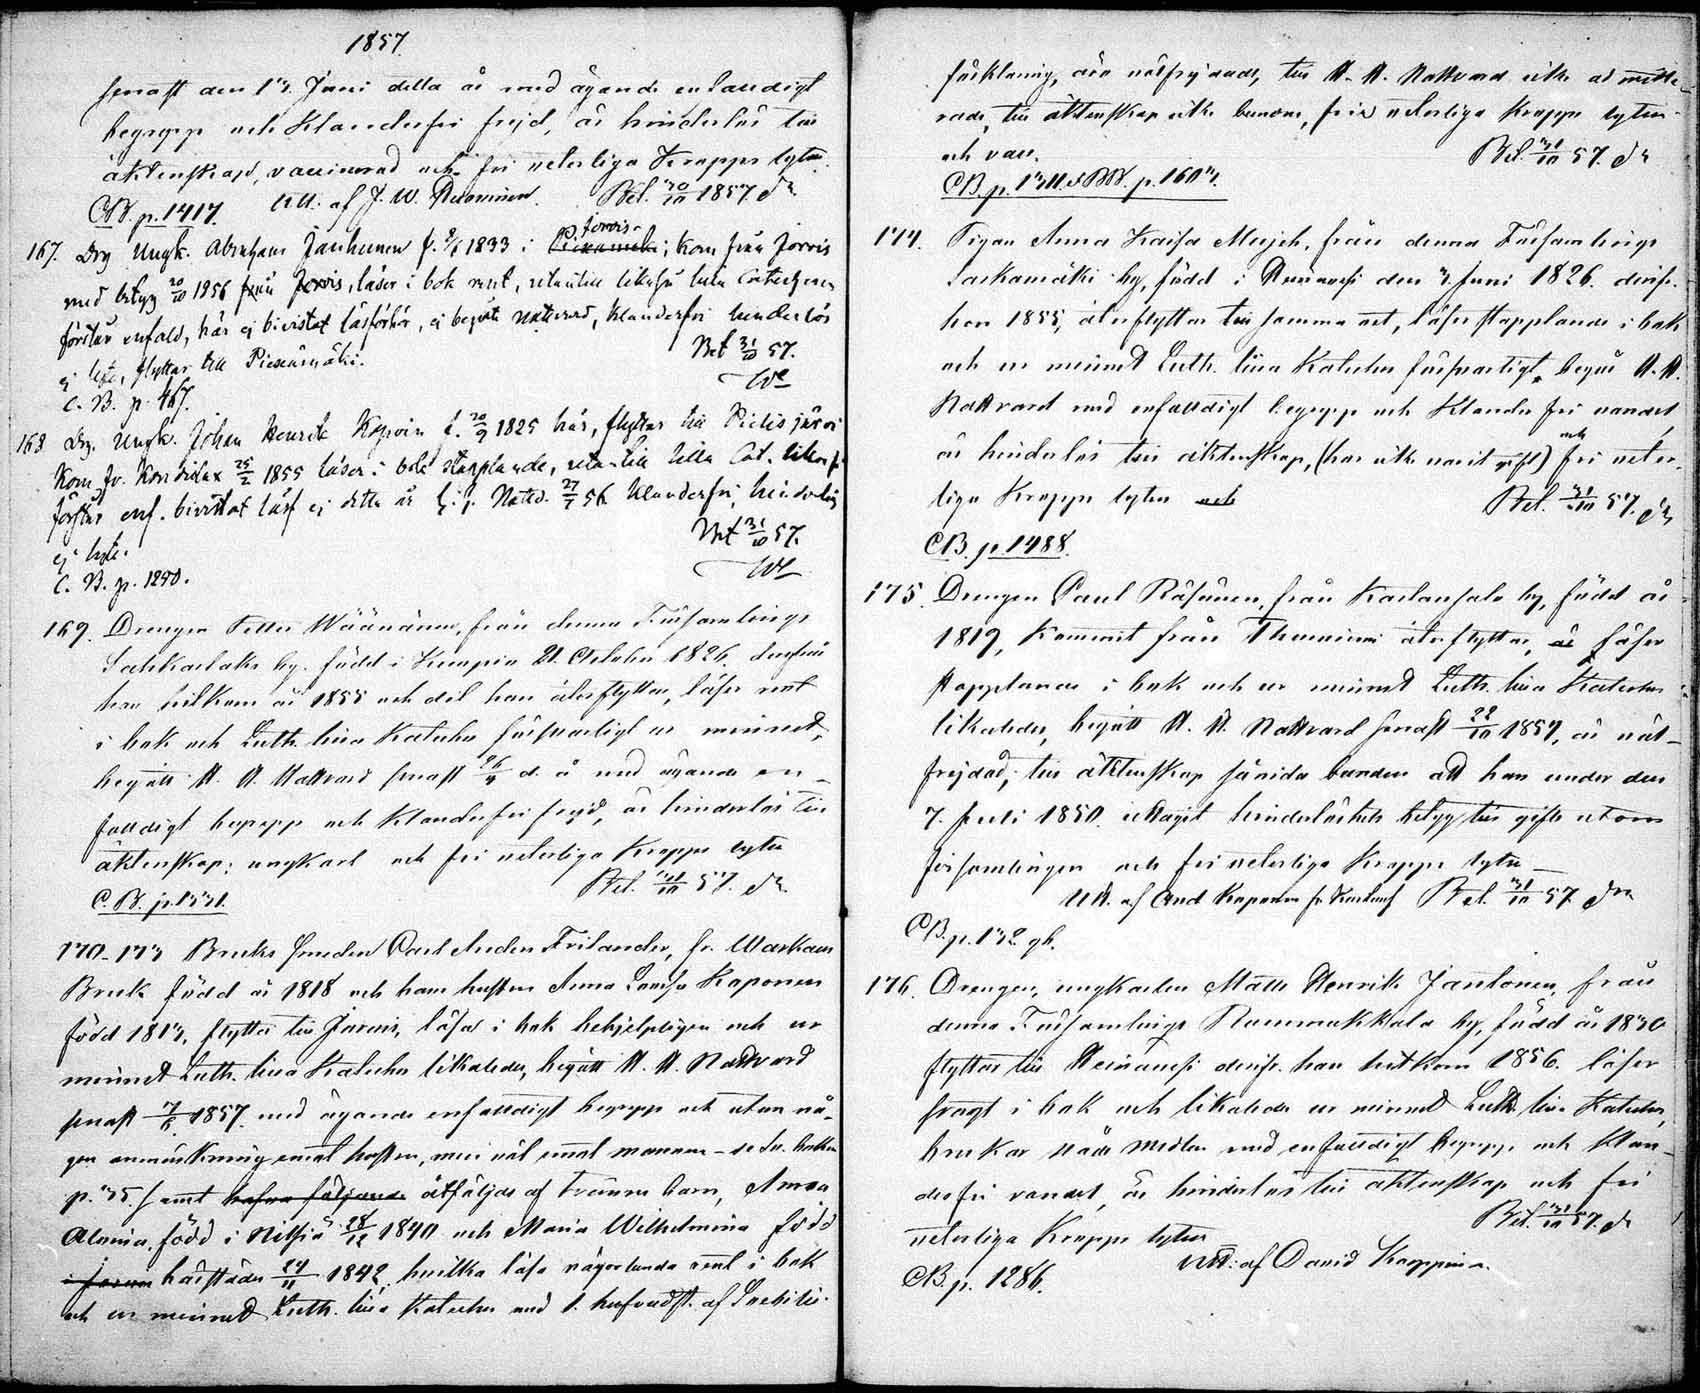 1857
senast den 13 Juni detta år med ägande enfaldigt
begrepp och Klanderfri frejd, är hinderlös till
äktenskap, vaccinerad och fri veterliga Kropps lyten.
CB. p. 1417. utt. af J. W. Bet. 30/10 1857. dr
p. Jorois
167. Drg Ungk. Abraham Janhunen f. 1833 i ; kom från Jorois
med betyg 20/10 1856 från Jorois, läser i bok rent, utantill likaså Catechesen
förstår enfald, här ej bivistat läsförhör, ej begått nattvard, klanderfri hinderlös
ej lyte, flyttar till Pieksämäki. Bet 31/10 57.
C. B. p. 467.
168 Drg. Ungk. Johan Henrik f. 20/9 1825 här, flyttar till Pielisjärvi
Kom fr. Kontiolax 25/2 1855 läser i bok stapplande, utantill lilla Cat. likaså
förstår enf. bivistat läsf ej detta år Nattv. 27/7 56 klanderfri, hinderlös
ej lyte. Bet 31/10 57.
C. B. p. 1290.
169. Drengen Petter Wäänänen, från denna Församlings
by. född i Kuopio 21. October 1826. derifrån
han hitkom år 1855 och dit han återflyttar, läser rent
i bok och Luth. lilla Kateches försvarligt ur minnet,
begått H. H. Nattvard senast d. å med ägande en-
faldigt begrepp och Klanderfri frejd, är hinderlös till
äktenskap; ungkarl och fri veterliga Kropps lyten
Bet. 31/10 57. dr.
C. B. p. 1531.
170-173 Bruks smeden Carl Anders Frilander, fr. Warkaus
Bruk född år 1818 och hans hustru Anna Lovisa Kaponen
född 1813, flyttar till Jorois, läsa i bok behjelpligen och ur
minnet Luth. lilla Kateches likaledes, begått H. H. Nattvard
senast 1857. med ägande enfaldigt begrepp och utan nå-
gon anmärkning emot hustrun, men väl emot mannen - se
p. 35. samt hafva följande åtföljas af tvänne barn, Anna
Alvina, född i Nilsiä 28/12 1840 och Maria Wilhelmina född
härstädes 24/11 1842. hvilka läsa någorlunda rent i bok
och ur minnet Luth. lilla Kateches med 1. hufvudst. af Svebilii
förklaring, äro välfrejdade, till H. H. Nattvard icke admitte-
rade, till äktenskap icke bundna, fria veterliga Kropps lyten
och vacc. Bet. 31/10 57. dr
CB. p. 1311. & BB. p. 1603.
174. Pigan Anna Kaisa från denna Församlings
by, född i den 3. Juni 1826. derifr.
hon 1855, återflyttar till samma ort, läser stapplande i bok
och ur minnet Luth. lilla Kateches försvarligt, begår H. H.
Nattvard med enfaldigt begrepp och Klanderfri vandel,
är hinderlös till äktenskap, (har icke varit gift) och fri veter-
liga Kropps lyten och Bet. 31/10 57. dr
CB. p. 1488.
175. Drengen Paul Räsänen, från by, född år
1819, kommit från Thusniemi återflyttar, är läser
stapplande i bok och ur minnet Luth. lilla Kateches
likaledes, begått H. H. Nattvard senast 22/10 1857, är väl-
frejdad, till äktenskap såvida bunden att han under den
7. Juli 1850. uttagit hinderlöshets betyg till gifte utom
församlingen och fri veterliga Kropps lyten
utt. af And Kaponen fr Bet. 31/10 57 dr
CB. p. 132 gl.
176. Drengen, ungkarlen Matts Henrik Jantonen, från
denna Församlings Nammakkala by, född år 1830
flyttar till derifr. han hitkom 1856. läser
svagt i bok och likaledes ur minnet Luth. lilla Kateches,
brukar nådemedlen med enfaldigt begrepp och klan-
derfri vandel, är hinderlös till äktenskap och fri
veterliga Kropps lyten Bet. 31/10 57. dr
utt: af David Karppinen.
CB. p. 1286.